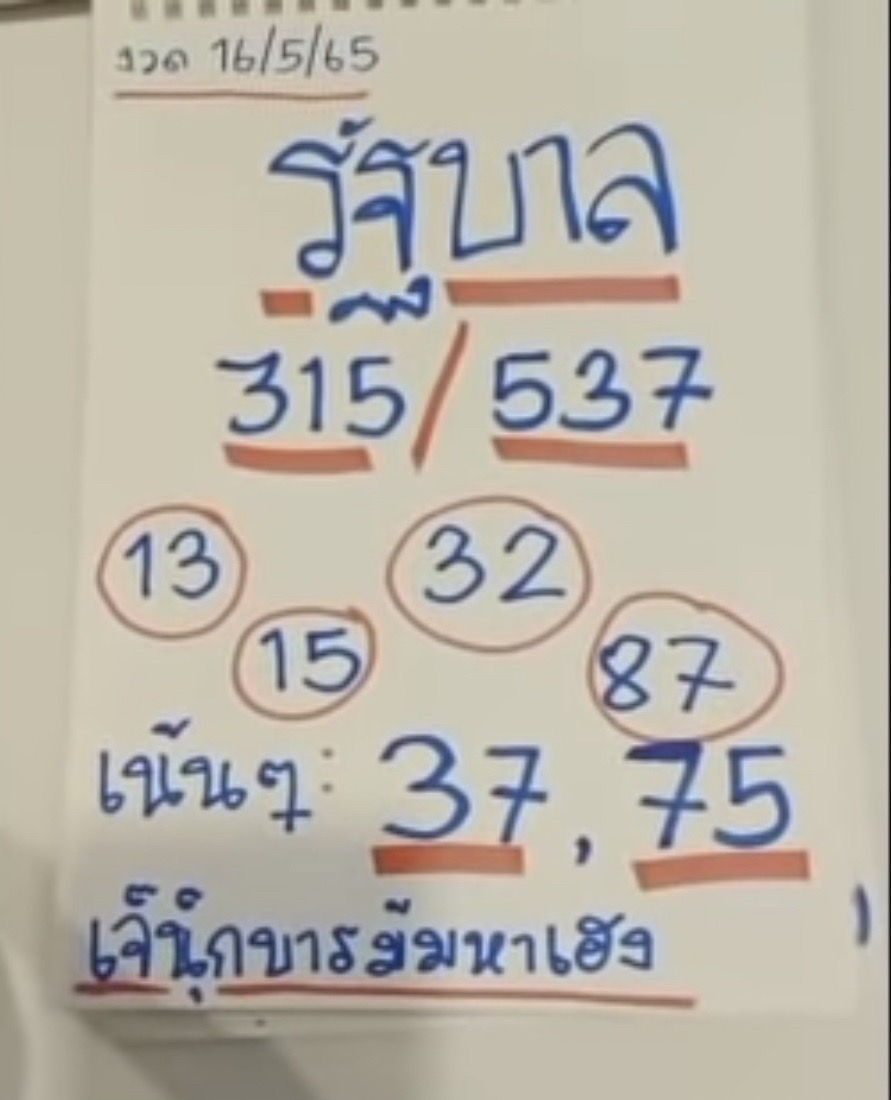 งวด 16/5/65
รัฐบาล
315/537
13 32
15 87
เน้นๆ: 37, 75
เจ๊นุ๊กบารมีมหาเฮง